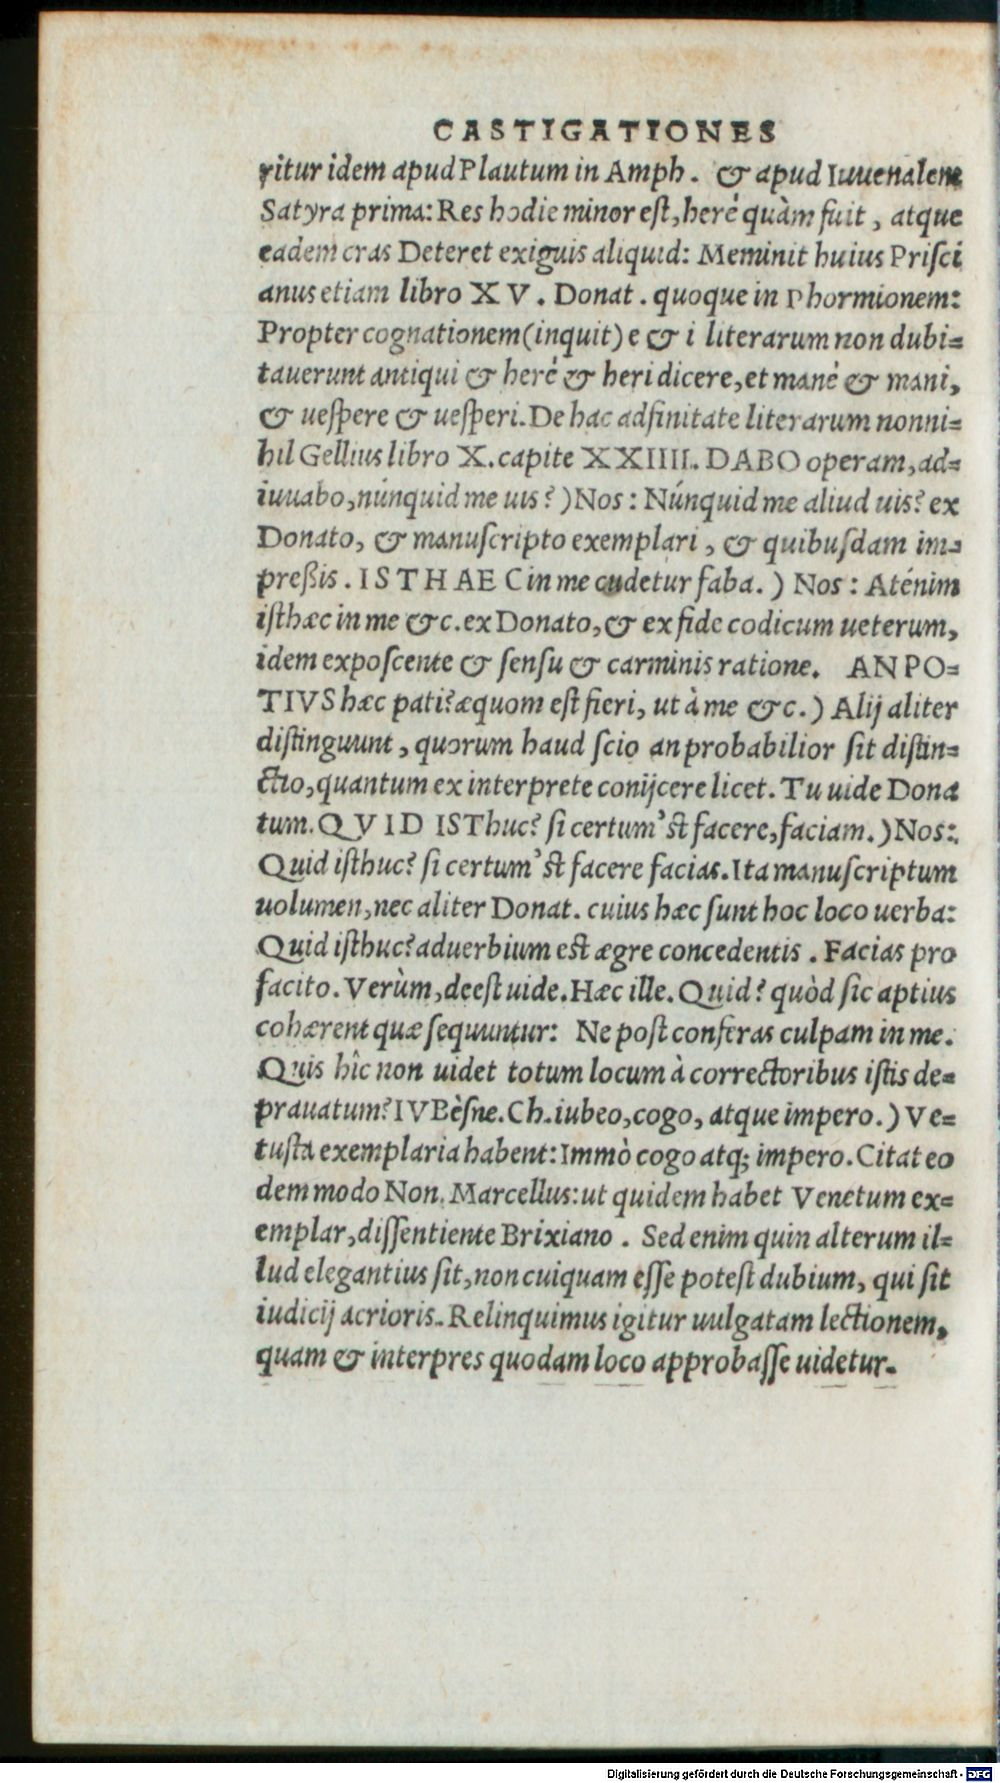 CASTIGATIONES
ritur idem apud Plautum in Amph. & apud Iuuenalem
Satyra prima: Res hodie minor est, herè quàm fuit, atque
eadem cras Deteret exiguis aliquid: Meminit huius Prisci
anus etiam libro XV. Donat. quoque in Phormionem:
Propter cognationem (inquit) e & i literarum non dubi=
tauerunt antiqui & herè & heri dicere, et manè & mani,
& uespere & uesperi. De hac adfinitate literarum nonni=
hil Gellius libro X. capite XXIIII. DABO operam, ad=
iuuabo, núnquid me uis?) Nos: Núnquid me aliud uis? ex
Donato, & manuscripto exemplari, & quibusdam im=
preßis. ISTHAEC in me cudetur faba.) Nos: Aténim
isthæc in me &c. ex Donato, & ex fide codicum ueterum,
idem exposcente & sensu & carminis ratione. AN PO=
TIVS hæc pati? æquom est fieri, ut à me &c.) Alij aliter
distinguunt, quorum haud scio an probabilior sit distin=
ctio, quantum ex interprete conijcere licet. Tu uide Dona
tum. QVID ISThuc? si certum'st facere, faciam.) Nos:
Quid isthuc? si certum'st facere facias. Ita manuscriptum
uolumen, nec aliter Donat. cuius hæc sunt hoc loco uerba:
Quid isthuc? aduerbium est ægre concedentis. Facias pro
facito. Verùm, deest uide. Hæc ille. Quid? quòd sic aptius
cohærent quæ sequuntur: Ne post conferas culpam in me.
Quis hîc non uidet totum locum à correctoribus istis de=
prauatum? IVBèsne. Ch. iubeo, cogo, atque impero.) Ve=
tusta exemplaria habent: Immò cogo atq; impero. Citat eo
dem modo Non. Marcellus: ut quidem habet Venetum ex=
emplar, dissentiente Brixiano. Sed enim quin alterum il=
lud elegantius sit, non cuiquam esse potest dubium, qui sit
iudicij acrioris. Relinquimus igitur uulgatam lectionem,
quam & interpres quodam loco approbasse uidetur.
Digitalisierung gefördert durch die Deutsche Forschungsgemeinschaft - DFG